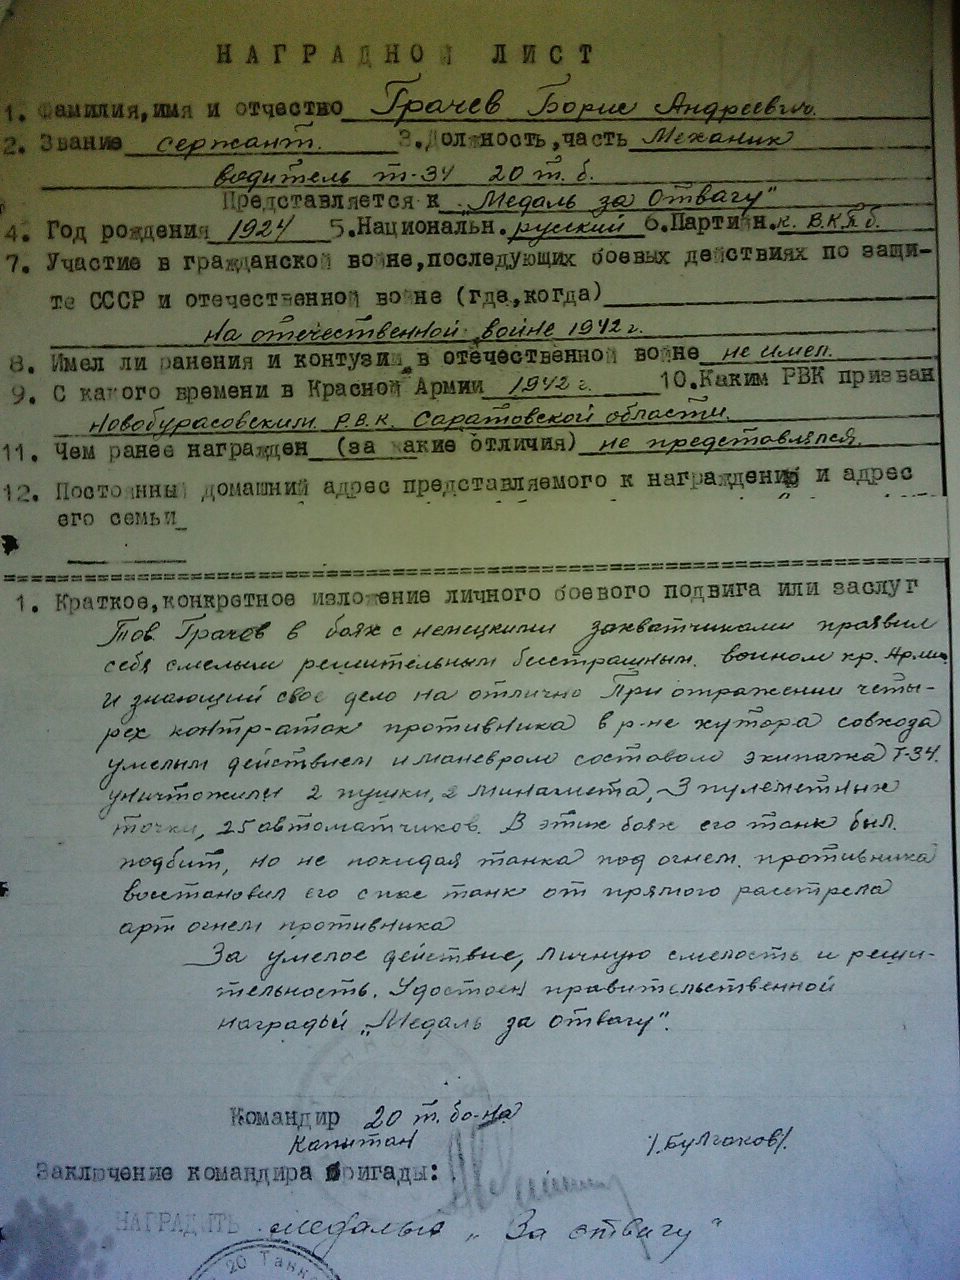 НАГРАДНОЙ ЛИСТ
1. Фамилия,имя и отчество Грачев Борис Андреевич.
2. Звание сержант. 3.Должность,часть Механик
водитель т-34 20 т.б.
Представляется к "Медаль за Отвагу"
4. Год рождения 1924 5.Национальн. русский 6.Партийн. к. В.К.П.б.
7. Участие в гражданской войне,последующих боевых действиях по защи-
те СССР и отечественной войне (где,когда)
на отечественной войне 1942 г.
8. Имел ли ранения и контузии в отечественной войне не имел.
9. С какого времени в Красной Армии 1942 г. 10.Каким РВК призван
Новобурасовским Р.В.К. Саратовской области.
11. Чем ранее награжден (за какие отличия) не представлялся.
12. Постоянный домашний адрес представляемого к награждению и адрес
его семьи
1. Краткое,конкретное изложение личного боевого подвига или заслуг
Тов. Грачев в боях с немецкими захватчиками проявил
себя смелым решительным бесстрашным воином кр. Арми
и знающий свое дело на отлично При отражении четы-
рех контр-атак противника в р-не хутора совхоза
умелым действием и маневром составом экипажа Т-34.
уничтожили 2 пушки, 2 миномета, 3 пулеметных
точки, 25 автоматчиков. В этих боях его танк был.
подбит, но не покидая танка под огнем. противника
восстановил его спас танк от прямого расстрела
арт огнем противника
За умелое действие, личную смелость и реши-
тельность. Удостоен правительственной
награды "Медаль за отвагу".
Командир 20 т. бо-на
Капитан /.Булгаков/.
Заключение командира бригады:
НАГРАДИТЬ медалью "За отвагу"
20 Танк